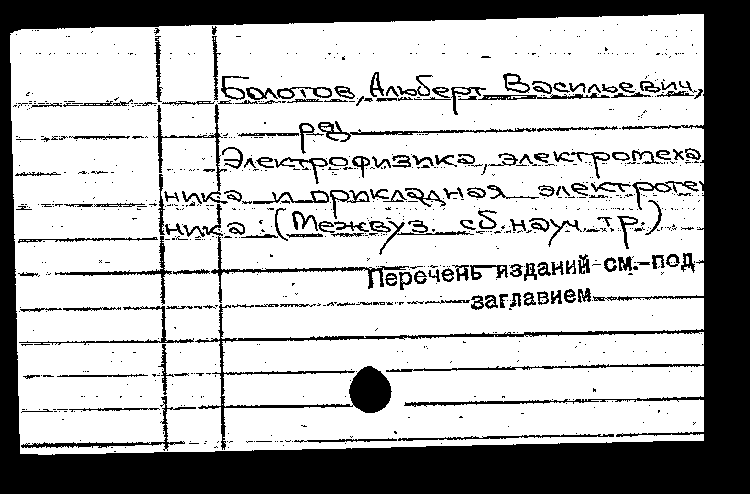 Болотов, Альберт Васильевич,
ред.
Электрофизика, электромеха
ника и прикладная электроте
ника : (Межвуз. сб. науч. тр.)
Перечень изданий см. под
заглавием